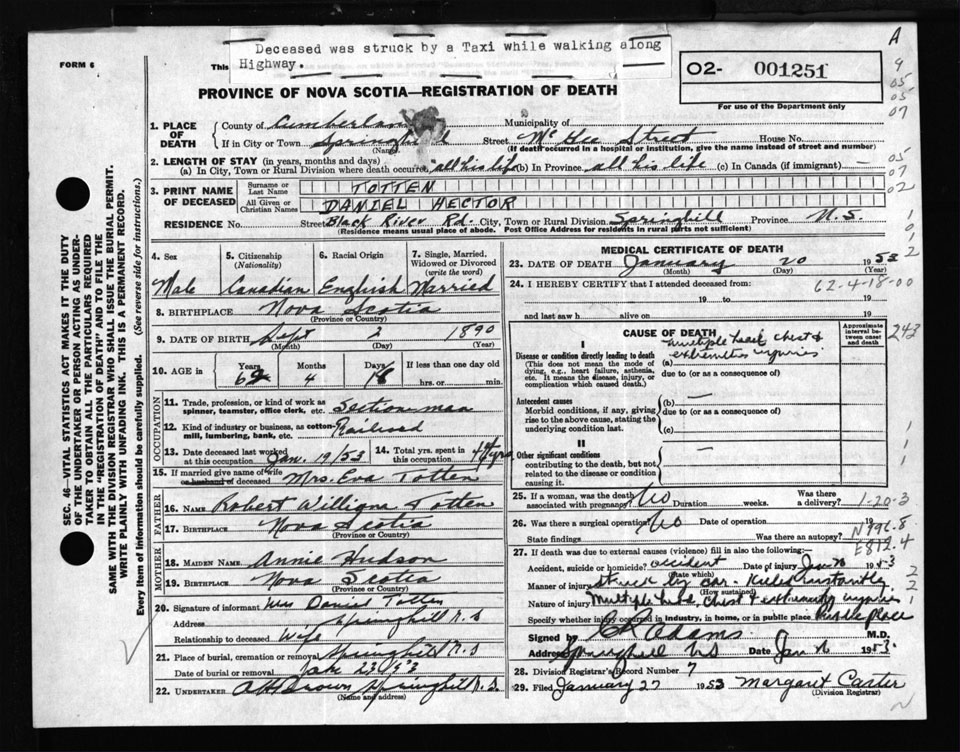 Deceased was struck by a Taxi while walking along
Highway.
FORM 6
This
O2- 001251
For use of the Department only
A
9
05
05
07
05
07
02
PROVINCE OF NOVA SCOTIA—REGISTRATION OF DEATH
1. PLACE OF DEATH
County of Cumberland Municipality of
If in City or Town Springhill Street McGee Street House No.
(Name) (If death occurred in a hospital or institution, give the name instead of street and number)
2. LENGTH OF STAY (in years, months and days)
(a) In City, Town or Rural Division where death occurred all his life (b) In Province all his life (c) In Canada (if immigrant) —
3. PRINT NAME OF DECEASED
Surname or Last Name TOTTEN
All Given or Christian Names DANIEL HECTOR
RESIDENCE No. Street Black River Rd. City, Town or Rural Division Springhill Province N.S.
(Residence means usual place of abode. Post Office Address for residents in rural parts not sufficient)
4. Sex
5. Citizenship (Nationality)
6. Racial Origin
7. Single, Married, Widowed or Divorced (write the word)
Male Canadian English Married
8. BIRTHPLACE Nova Scotia
(Province or Country)
9. DATE OF BIRTH Sept 2 1890
(Month) (Day) (Year)
10. AGE in Years Months Days If less than one day old
62 4 18 hrs. or min.
OCCUPATION
11. Trade, profession, or kind of work as spinner, teamster, office clerk, etc. Section man
12. Kind of industry or business, as cotton-mill, lumbering, bank, etc. Railroad
13. Date deceased last worked at this occupation Jan. 19/53
14. Total yrs. spent in this occupation yrs
15. If married give name of wife or husband of deceased Mrs. Eva Totten
FATHER
16. NAME Robert William Totten
17. BIRTHPLACE Nova Scotia
(Province or Country)
MOTHER
18. MAIDEN NAME Annie Hudson
19. BIRTHPLACE Nova Scotia
(Province or Country)
20. Signature of informant Mrs Daniel Totten
Address Springhill N.S
Relationship to deceased Wife
21. Place of burial, cremation or removal Springhill N.S
Date of burial or removal Jan 23
22. UNDERTAKER Brown Springhill N.S.
(Name and address)
MEDICAL CERTIFICATE OF DEATH
23. DATE OF DEATH January 20 1953
(Month) (Day) (Year)
24. I HEREBY CERTIFY that I attended deceased from:
62-4-18-00
19 to 19
and last saw h alive on 19
CAUSE OF DEATH
Approximate interval between onset and death
243
I
Disease or condition directly leading to death
(This does not mean the mode of dying, e.g., heart failure, asthenia, etc. It means the disease, injury, or complication which caused death.)
multiple head chest &
(a) extremities injuries
due to (or as a consequence of)
Antecedent causes
Morbid conditions, if any, giving rise to the above cause, stating the underlying condition last.
(b) —
due to (or as a consequence of)
(c) —
II
Other significant conditions
contributing to the death, but not related to the disease or condition causing it.
25. If a woman, was the death associated with pregnancy? No Duration weeks. Was there a delivery?
1-20-3
26. Was there a surgical operation? No Date of operation 19
State findings Was there an autopsy?
N996.8
E812.4
27. If death was due to external causes (violence) fill in also the following:—
Accident, suicide or homicide? accident Date of injury Jan 20 1953
(State which)
Manner of injury struck by car - Killed instantly
(How sustained)
Nature of injury Multiple head, chest & extremity injuries
Specify whether injury occurred in Industry, in home, or in public place Public place
Signed by Adams M.D.
Address Springhill NS Date Jan 1953
28. Division Registrar's Record Number 7
29. Filed January 27 1953 Margaret Carter
(Division Registrar)
SEC. 46—VITAL STATISTICS ACT MAKES IT THE DUTY
OF THE UNDERTAKER OR PERSON ACTING AS UNDER-
TAKER TO OBTAIN ALL THE PARTICULARS REQUIRED
IN THE "REGISTRATION OF DEATH" AND TO FILE THE
SAME WITH THE DIVISION REGISTRAR WHO SHALL ISSUE THE BURIAL PERMIT.
WRITE PLAINLY WITH UNFADING INK. THIS IS A PERMANENT RECORD.
Every item of information should be carefully supplied. (See reverse side for instructions.)